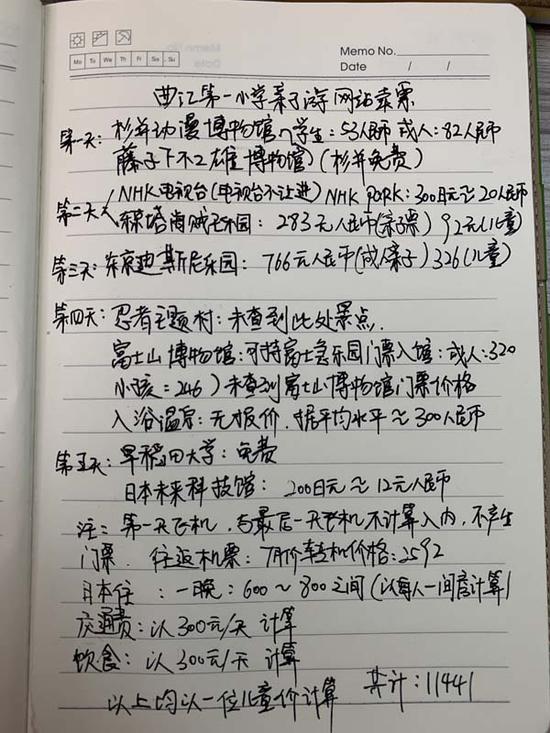 Memo No.
Date / /
Mo Tu We Th Fr Sa Su
曲江第一小学亲子游网站卖票
第一天: 杉并动漫博物馆 学生: 53人民币 成人: 82人民币
藤子不二雄博物馆) (杉并免费)
第二天 NHK电视台(电视台不让进) NHK PARK: 300日元≈20人民币
东京塔海贼王乐园: 283元人民币(亲子票) 92元(儿童)
第三天: 东京迪斯尼乐园: 766元人民币(成人亲子) 326(儿童)
第四天: 忍者主题村: 未查到此处景点.
富士山博物馆: 可持富士急乐园门票入馆: 成人: 320
小孩: 246) 未查到富士山博物馆门票价格
入浴温泉: 无报价. 据平均水平≈300人民币
第五天: 早稻田大学: 免费
日本未来科技馆: 200日元≈12元人民币
注: 第一天飞机, 与最后一天飞机不计算入内, 不产生
门票. 往返机票: 7月份转机价格: 2592
日本住 : 一晚: 600~800之间(以每人一间房计算)
交通费: 以300元/天 计算
饮食: 以300元/天 计算
以上均以一位儿童价计算 共计: 11441